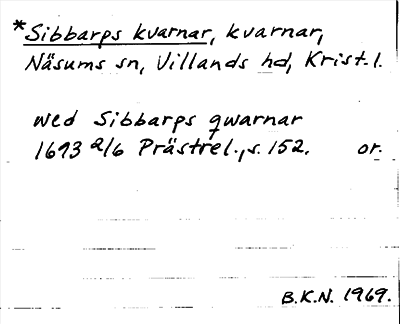 *Sibbarps kvarnar, kvarnar,
Näsums sn, Villands hd, Krist. l.
wed Sibbarps qwarnar
1693 2/6 Prästrel., s. 152. or.
B.K.N. 1969.